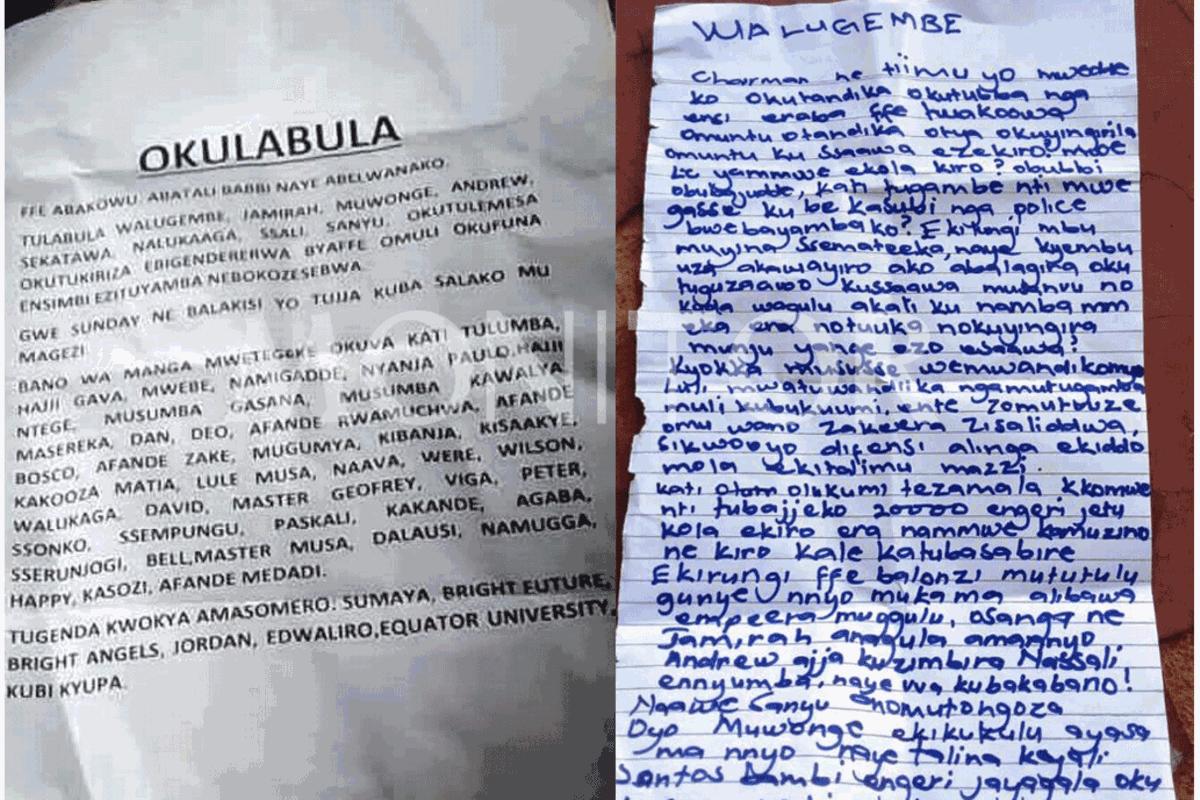 OKULABULA
FFE ABAKOWU ABATALI BABBI NAYE ABELWANAKO.
TULABULA WALUGEMBE, JAMIRAH, MUWONGE, ANDREW,
SEKATAWA, NALUKAAGA, SSALI, SANYU, OKUTULEMESA
OKUTUKIRIZA EBIGENDERERWA BYAFFE OMULI OKUFUNA
ENSIMBI EZITUYAMBA NEBOKOZESEBWA.
GWE SUNDAY NE BALAKISI YO TUJJA KUBA SALAKO MU
MAGEZI.
BANO WA MANGA MWETEGEKE OKUVA KATI TULUMBA,
HAJII GAVA, MWEBE, NAMIGADDE, NYANJA PAULO, HAJII
NTEGE, MUSUMBA GASANA, MUSUMBA KAWALYA
MASEREKA, DAN, DEO, AFANDE RWAMUCHWA, AFANDE
BOSCO, AFANDE ZAKE, MUGUMYA, KIBANJA, KISAAKYE,
KAKOOZA MATIA, LULE MUSA, NAAVA, WERE, WILSON,
WALUKAGA, DAVID, MASTER GEOFREY, VIGA, PETER,
SSONKO, SSEMPUNGU, PASKALI, KAKANDE, AGABA,
SSERUNJOGI, BELL,MASTER MUSA, DALAUSI, NAMUGGA,
HAPPY, KASOZI, AFANDE MEDADI.
TUGENDA KWOKYA AMASOMERO: SUMAYA, BRIGHT FUTURE,
BRIGHT ANGELS, JORDAN, EDWALIRO,EQUATOR UNIVERSITY,
KUBI KYUPA.
MONITOR
WALUGEMBE
Chairman ne tiimu yo mwedde
ko okutandika okutubba nga
ensi eraba ffe twakoowa
omuntu otandika otya okuyingirila
omuntu ku ssaawa ezekiro? mbe
yammwe ekola kiro? obubbi
kati tugambe nti mwe
gasse ku be kasubi nga police
bwebayambako? Ekirungi mbu
muyina Ssemateeka, naye kyembu
uza akawayiro ako abalagira oku
tuguzaawo kussaawa mukaavu no
koda wagulu akati ku namba mm
eka era notuuka nokuyingira
munju yange ezo essaawa?
Kyokka mususse wemwandikomye
mwatuwandiika ngamutugamba
muli kubukuumi, ente zomutuuze
omu wano zakeera zisaliddwa,
sikwooyo difensi alinga ekiddo
mola ekitalimu mazzi.
kati otom olukumi tezamala kkomwe
nti tubajjeko 20000 engeri jetu
kola ekiro era nammwe kamuzino
ne kiro kale katubasabire
Ekirungi ffe balonzi mututulu
gunye nnyo mukama alibawa
empeera muggulu, osanga ne
Jamirah anagula amannyo
Andrew ajja kuzimbira Nassali
ennyumba, naye wa kubakabano!
Naawe Sanyu enomutongoza
Oyo Muwonge ekikukulu ayasa
ma nnyo naye talina kajali
Santos bambi engeri jayagala oku